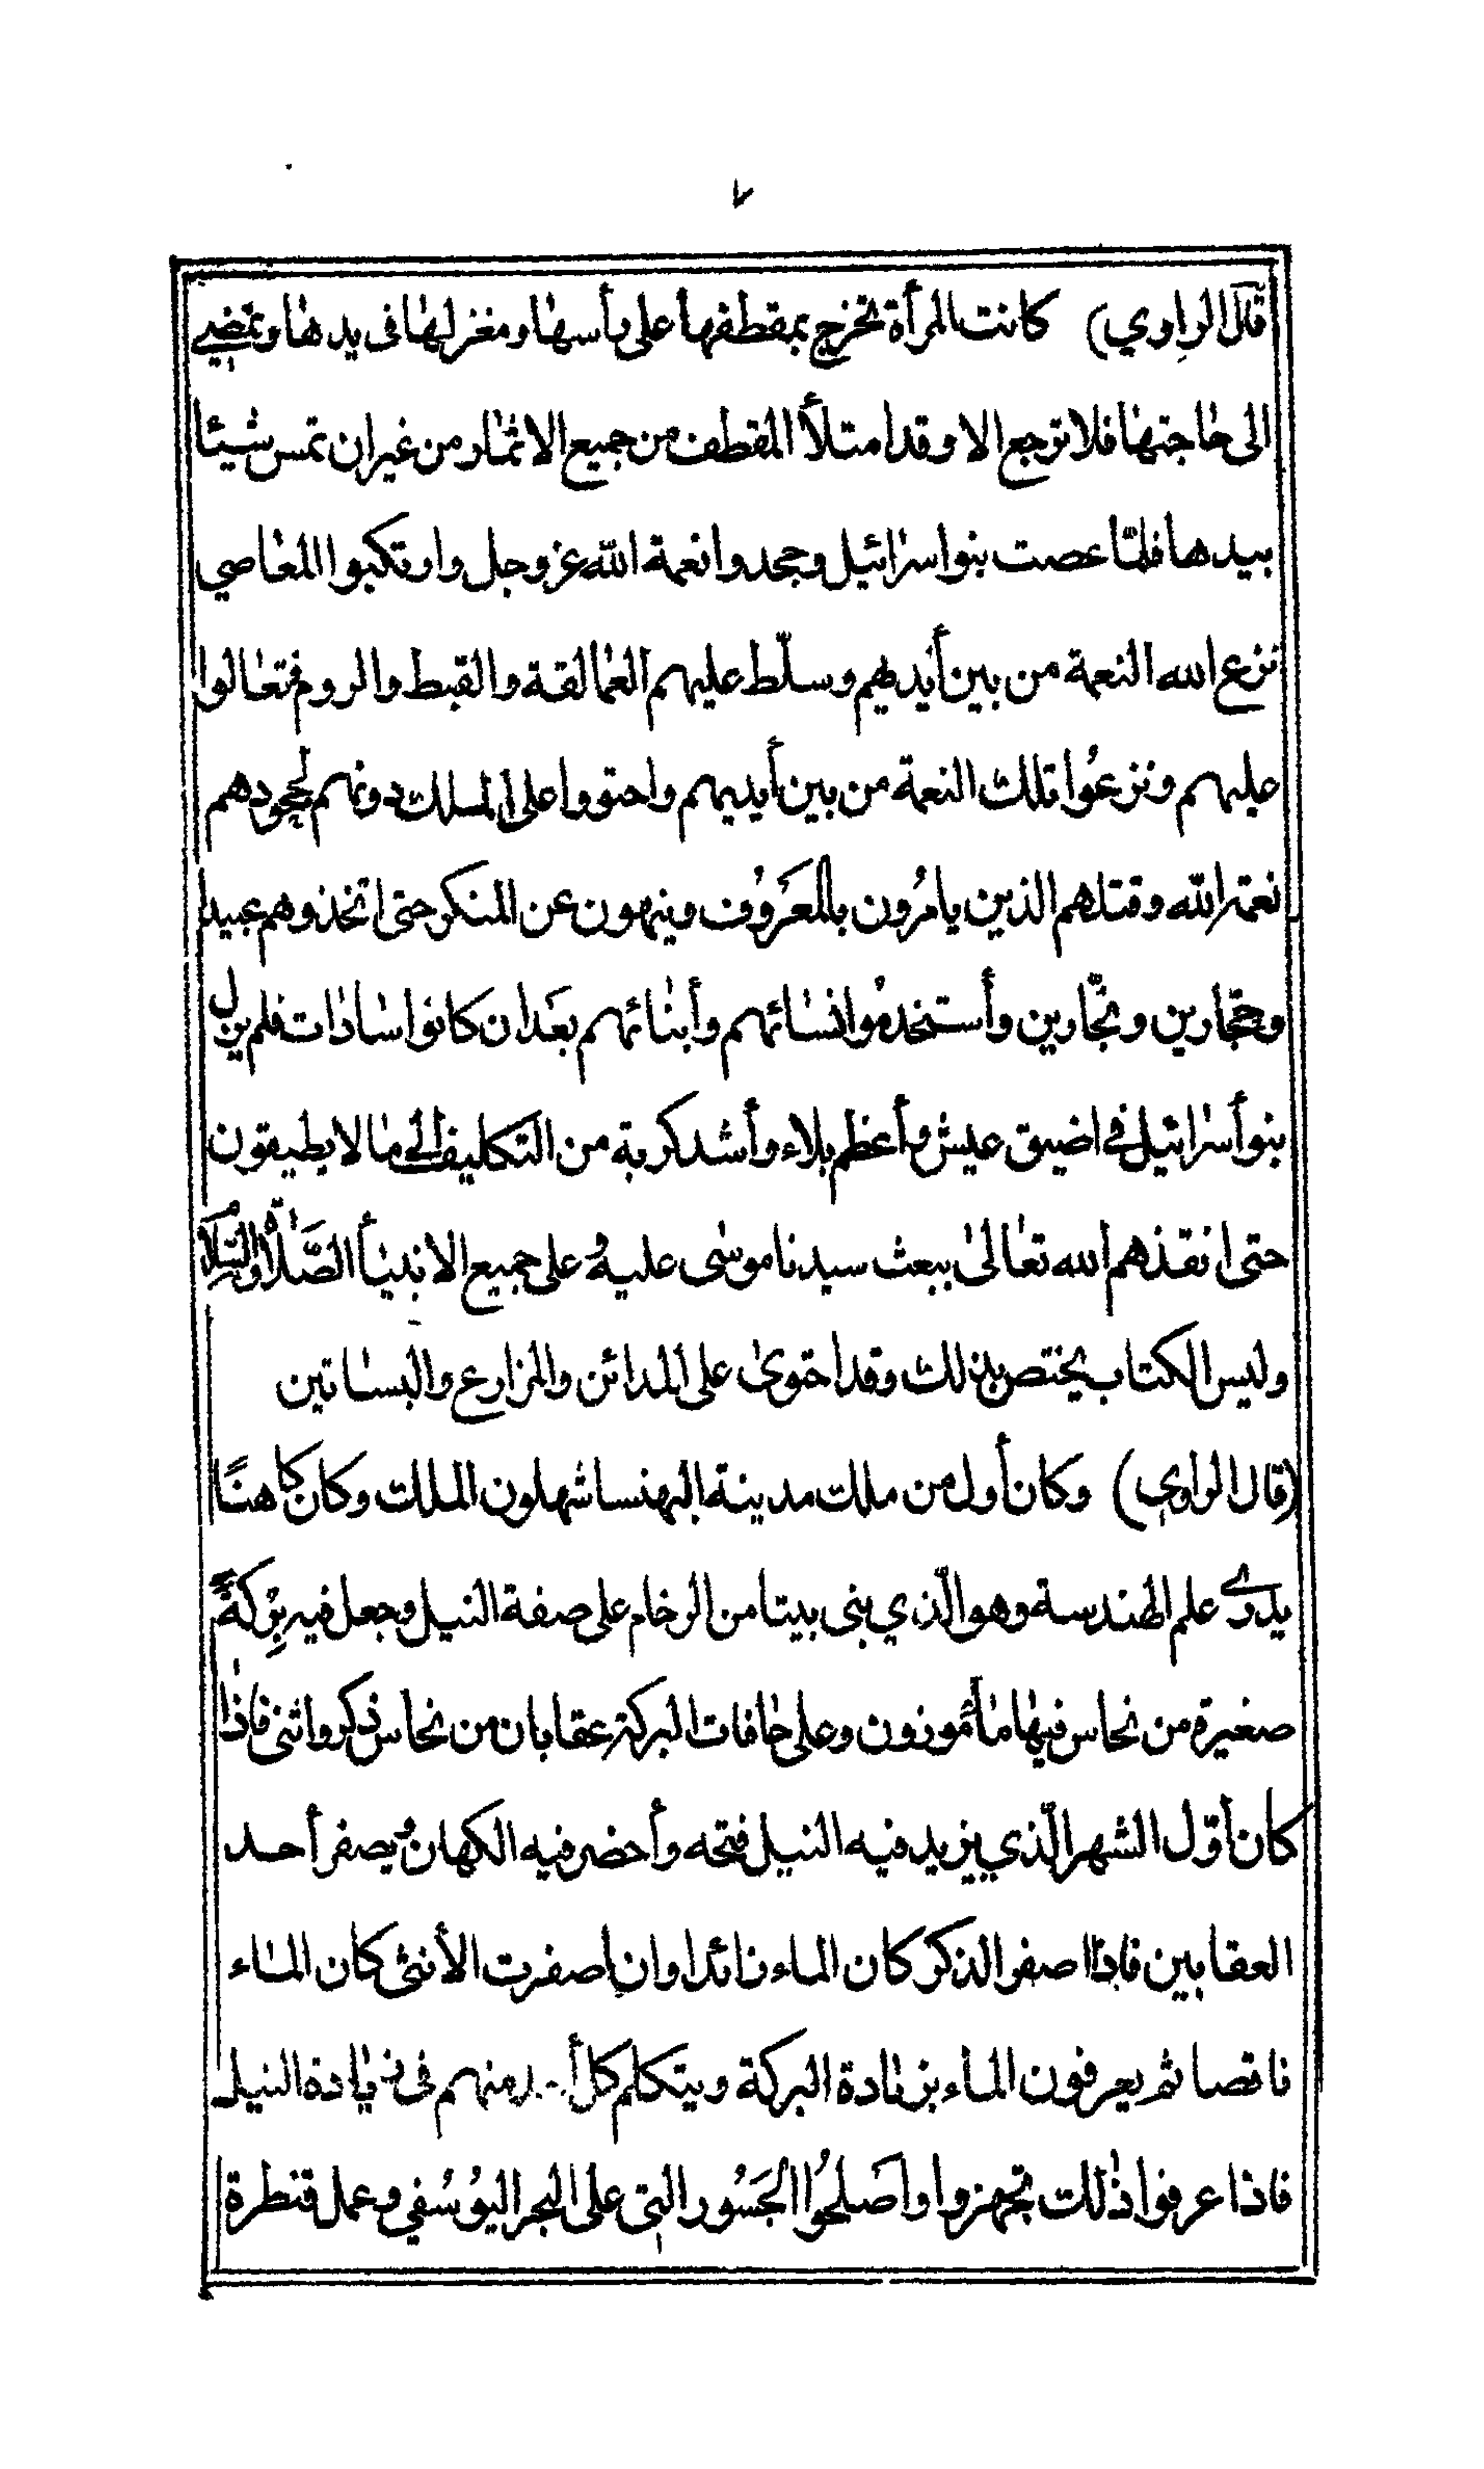 ٧
(قال الراوي) كانت المرأة تخرج بمقطفها على رأسها ومغزلها فى يدها وتمضي
الى حاجتها فلا ترجع الا وقد امتلأ المقطف من جميع الاثمار من غيران تمس شيئا
بيدها فلمّا عصت بنوا سرائيل وجحدوا نعمة الله عزوجل وارتكبوا المعاصي
نزع الله النعمة من بين أيديهم وسلّط عليهم العمالقة والقبط والروم فتعالوا
عليهم ونزعُوا تلك النعمة من بين أيديهم واحتووا على الملك دونهم لجحودهم
نعمة الله وقتلهم الذين يامرُون بالمعَروُف وينهون عن المنكر حتى اتخذوهم عبيدا
وحجّارين ونجّارين وأستخدمُوا نسائهم وأبنائهم بعَد ان كانوا سادات فلم يزل
بنو أسرائيل في اضيق عيش وأعظم بلاء وأشد كربة من التكليف الى ما لا يطيقون
حتى انقذهم الله تعالىٰ ببعث سيدنا موسٰى عليه وعلى جميع الانبيأ الصَّلاة والسّلام
وليس الكتاب يختص بذلك وقد احتوىٰ على المدائن والمزارع والبساتين
(قال الراوي) وكان أول من ملك مدينة البهنسا شهلون الملك وكان كاهنًا
يدرى علم الهندسة وهو الّذي بنى بيتا من الرخام على صفة النيل وجعل فيه بِرْكةً
صغيرة من نحاس فيها مأ موزون وعلى حافات البركة عقابان من نحاس ذكر وانثى فاذا
كان أوّل الشهر الّذي يزيد فيه النيل فتحه وأحضر فيه الكهان ويصفر أحد
العقابين فاذا اصفر الذكر كان الماء زائدا وان اصفرت الأنثى كان الماء
ناقصا ثم يعرفون الماء بزيادة البركة ويتكلم كل منهم فى زيادة النيل
فاذا عرفوا ذٰلك تجهزوا واصَلحُوا الجَسُور التى على البحر اليوُسُفي وعمل قنطرة